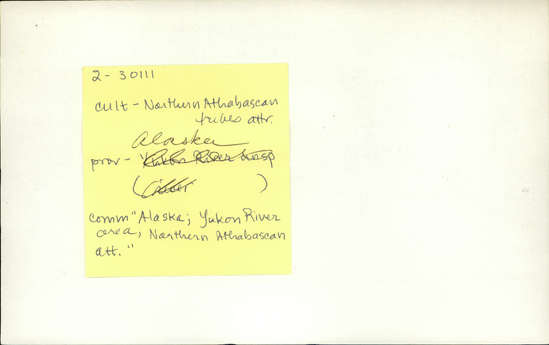 2-30111
cult - Northern Athabascan
tribes attr.
Alaska
prov - Yukon River
( )
comm "Alaska; Yukon River
area, Northern Athabascan
att."